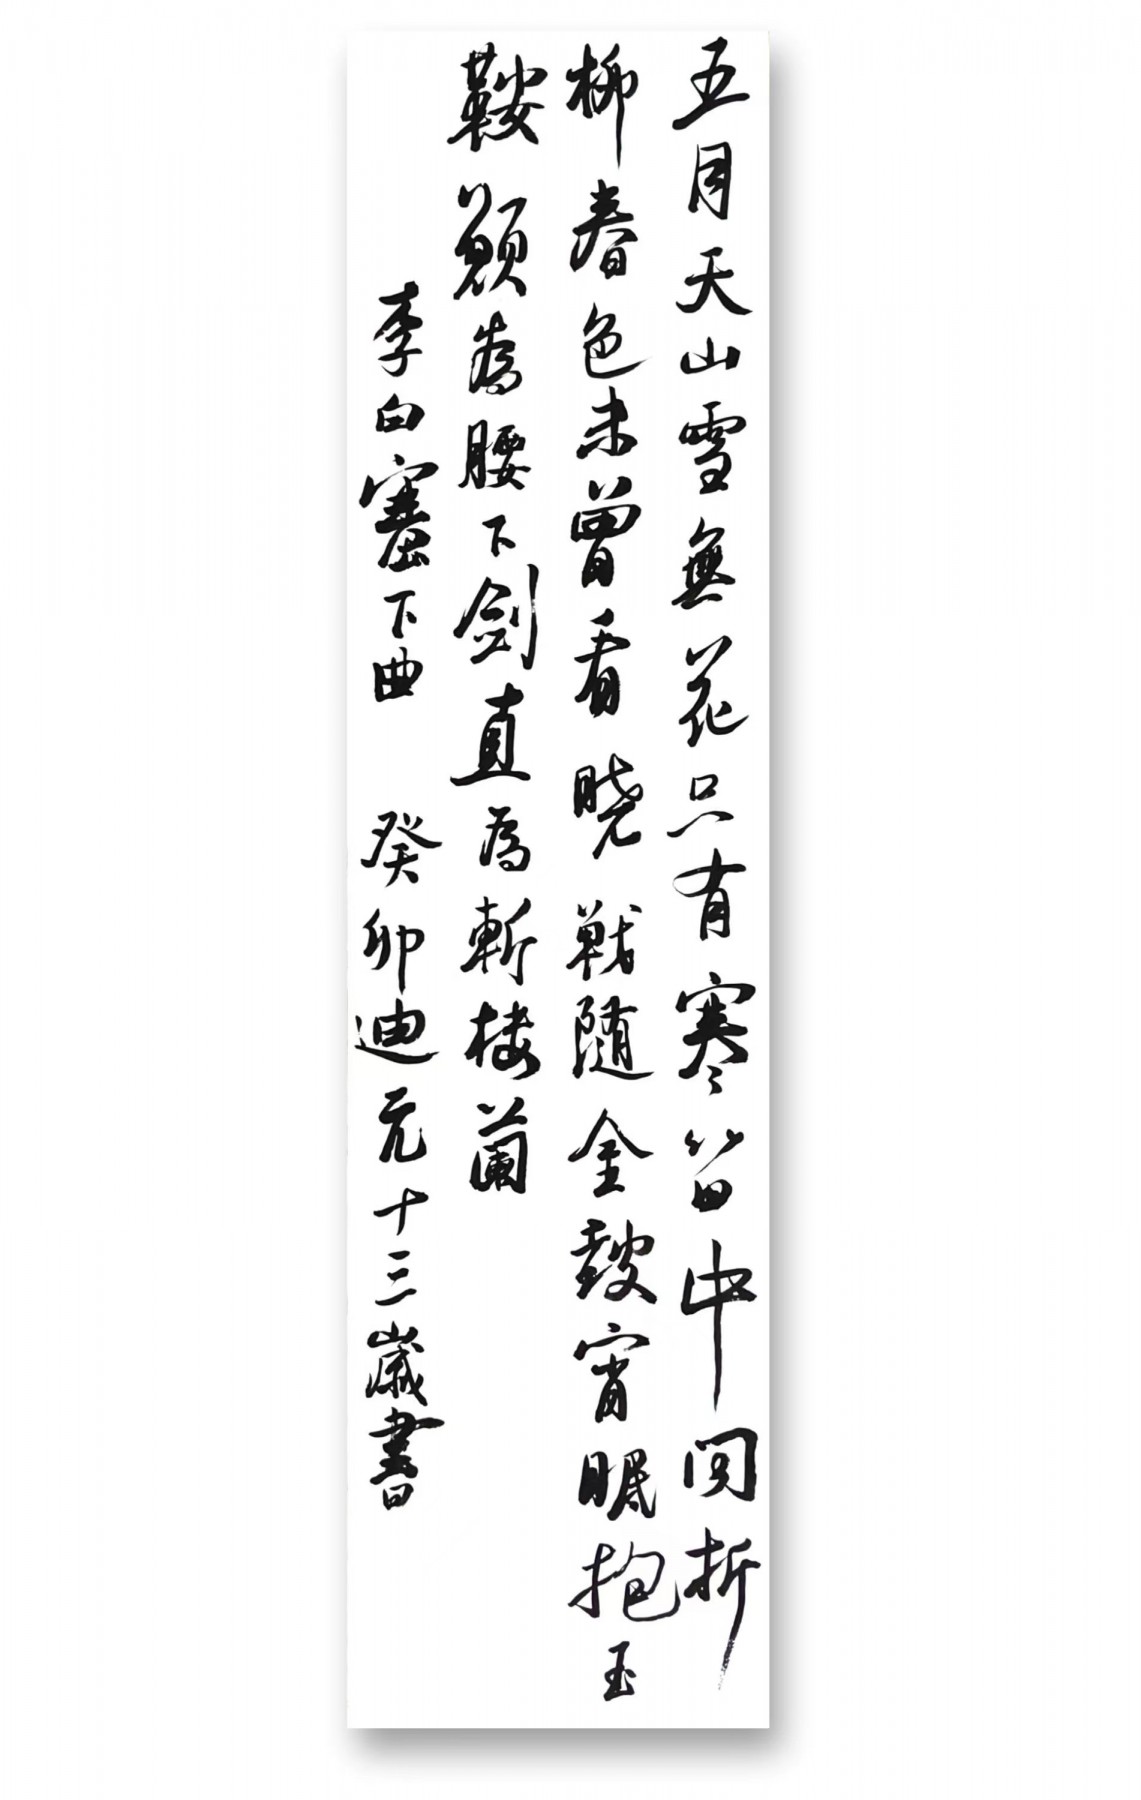 五月天山雪無花只有寒笛中聞折
柳春色未曾看曉戰随金鼓宵眠抱玉
鞍願為腰下劍直為斬楼蘭
李白塞下曲 癸卯迪元十三歲書